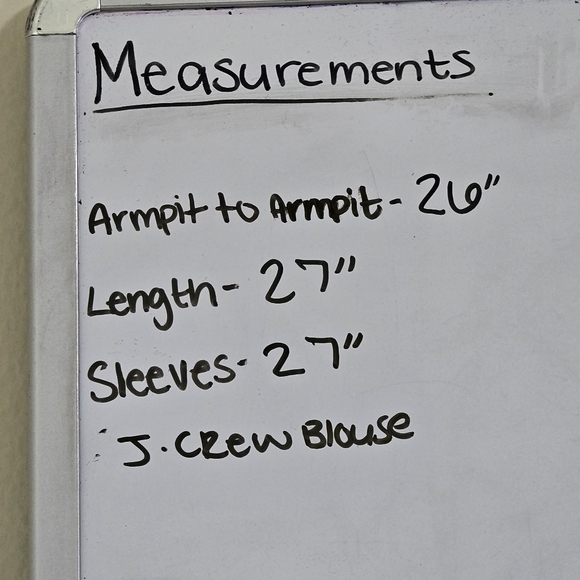 Measurements
Armpit to Armpit - 26"
Length - 27"
Sleeves - 27"
J. CREW Blouse